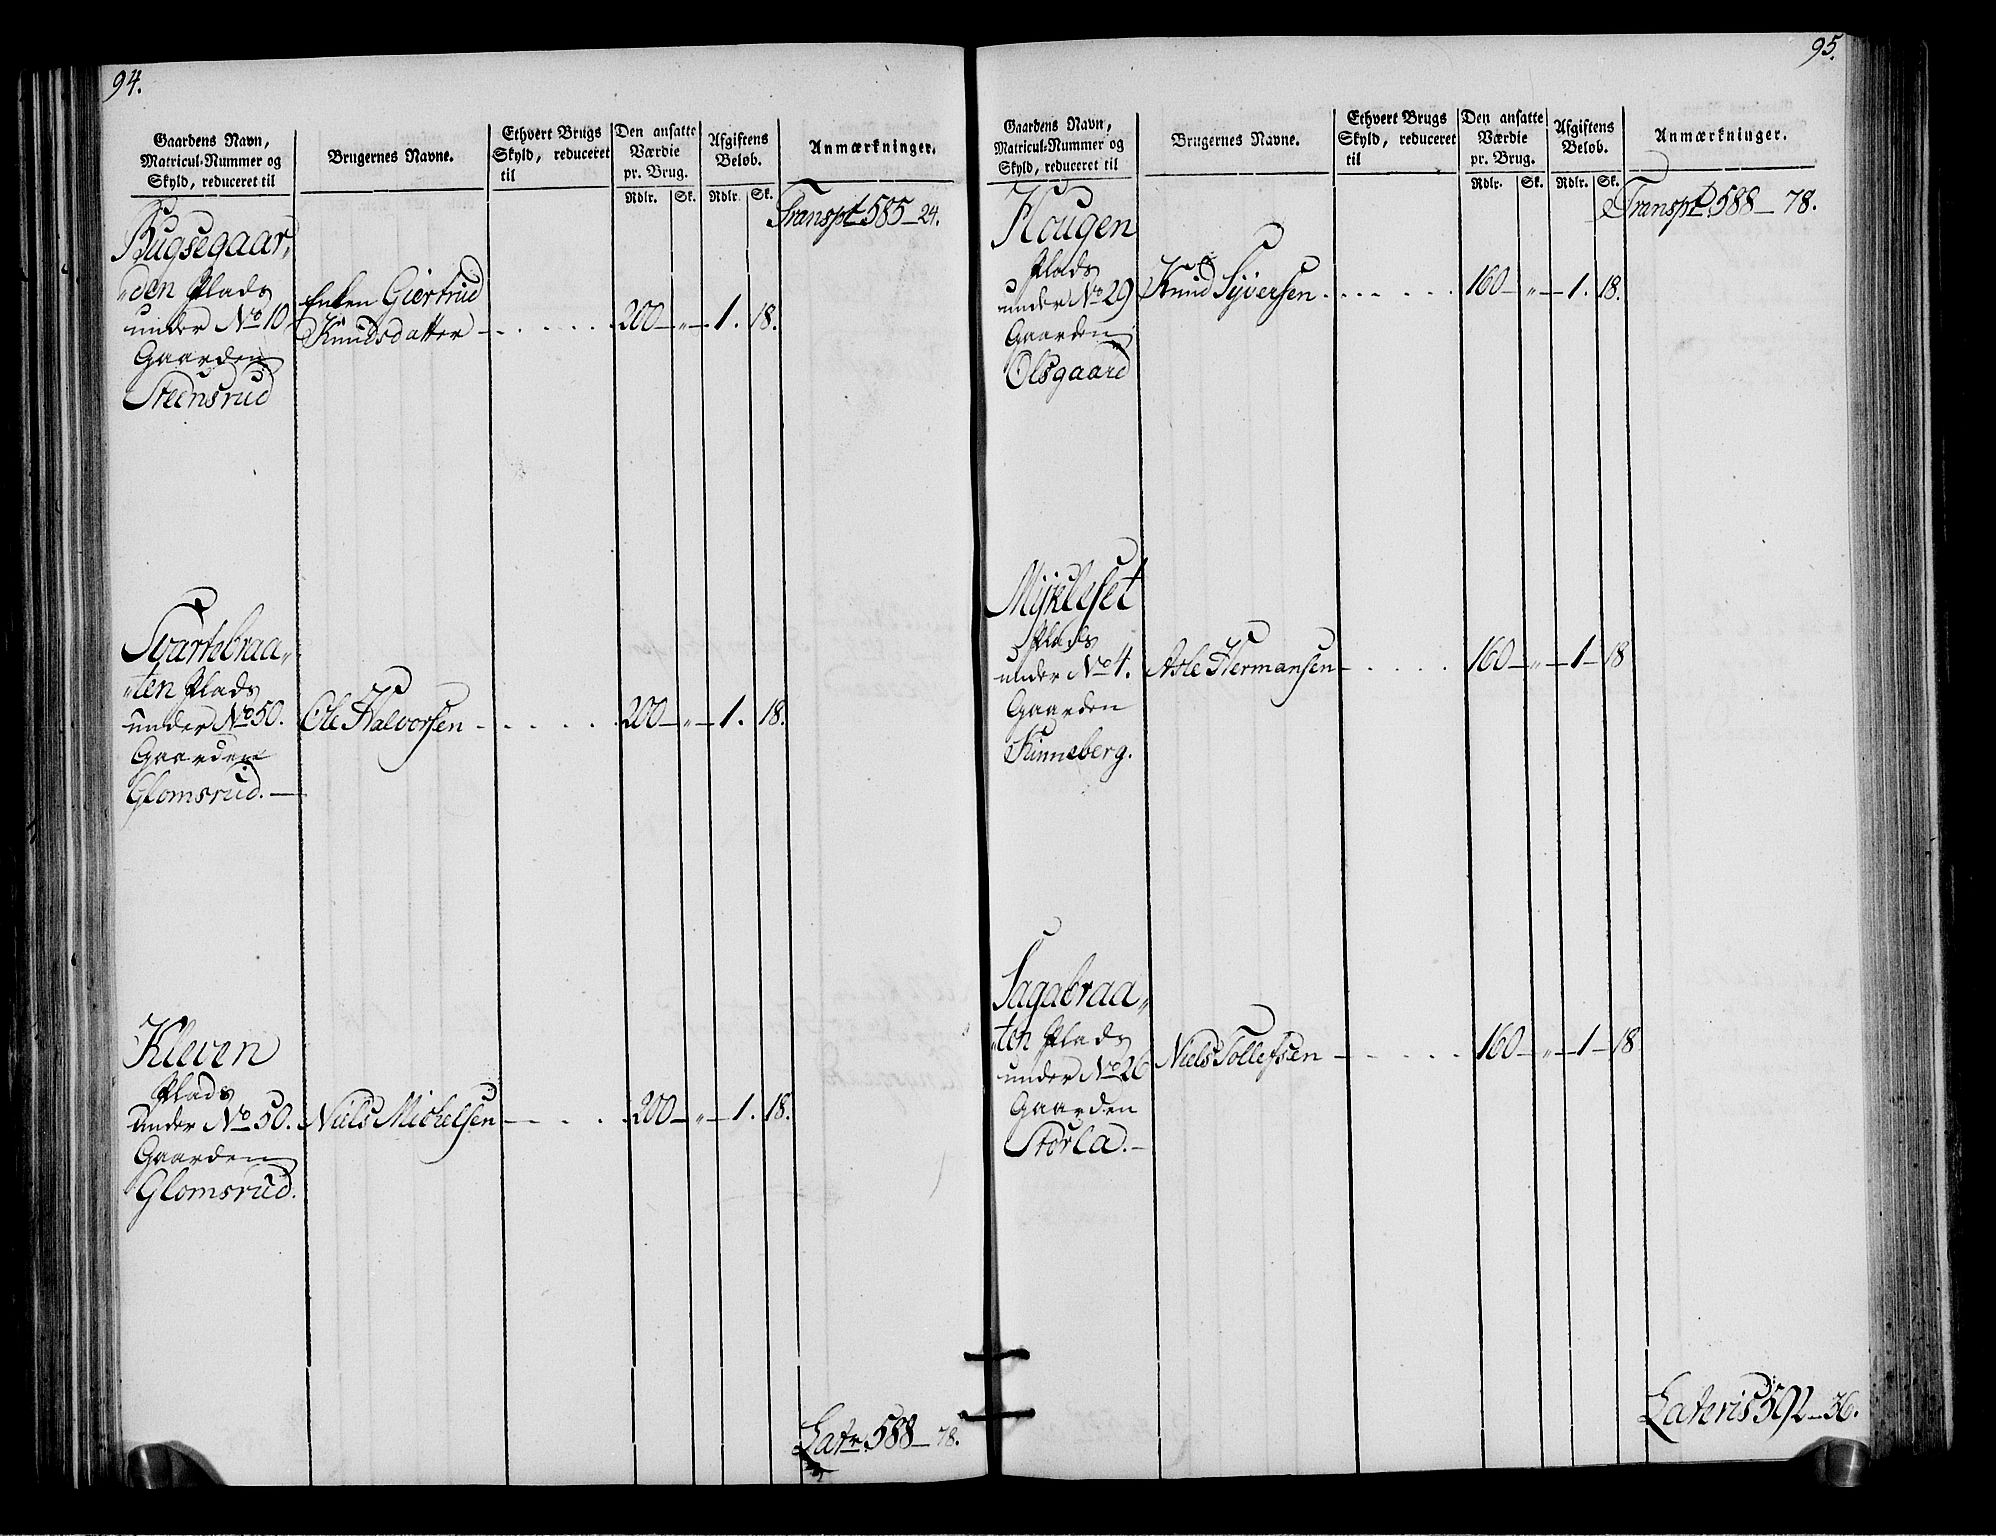 94.
Gaardens Navn,
Matricul-Nummer og
Skyld, reduceret til
Brugernes Navne.
Ethvert Brugs
Skyld, reduceret
til
Den ansatte
Værdie
pr. Brug.
Afgiftens
Beløb.
Anmærkninger.
Rdlr. Sk. Rdlr. Sk.
Transpt 585 - 24.
Bugsegaar,,
,,den Plads
under No 10
Gaarden
Steensrud
Enken Giertrud
Knudsdatter - . . . . . 200 - ,, - 1. 18.
Svartebraa,,
,,ten Plads
under No 50.
Gaarden
Glomsrud. -
Ole Halvorsen - . . . . . 200 - ,, - 1. 18.
Kleven
Plads
under No 50.
Gaarden
Glomsrud.
Niels Michelsen - . . . 200 - ,, - 1. 18.
Latr. 588 - 78.
95.
Gaardens Navn,
Matricul-Nummer og
Skyld, reduceret til
Brugernes Navne.
Ethvert Brugs
Skyld, reduceret
til
Den ansatte
Værdie
pr. Brug.
Afgiftens
Beløb.
Anmærkninger.
Rdlr. Sk. Rdlr. Sk.
Transpt 588 - 78.
Hougen
Plads
under No 29
Gaarden
Olsgaard
Knud Syversen . . . . . . 160 - ,, - 1. 18.
Mykleset
Plads
under No 4.
Gaarden
Finneberg.
Asle Hermansen - . . . . 160 - ,, - 1 - 18
Sagabraa,,
,,ten Plads
under No 26
Gaarden
Storla. -
Niels Tollefsen - . . . . . 160 - ,, - 1 - 18
Lateris 592 - 36.